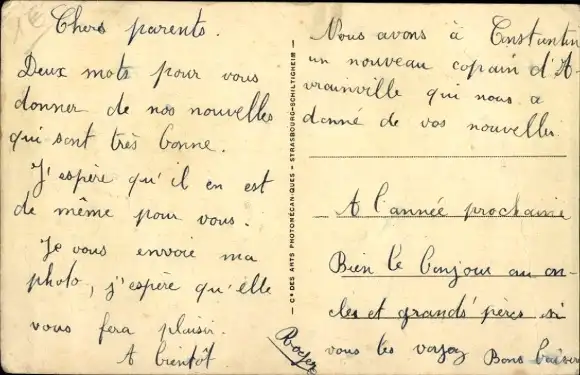 Chers parents.
Deux mots pour vous
donner de nos nouvelles
qui sont très bonne.
J'espère qu'il en est
de même pour vous.
Je vous envoie ma
photo, j'espère qu'elle
vous fera plaisir.
A bientôt
Roger
— Cie DES ARTS PHOTOMÉCANIQUES - STRASBOURG-SCHILTIGHEIM —
Nous avons à Constantin
un nouveau copain d'A-
vrainville qui nous a
donné de vos nouvelles.
A l'année prochaine
Bien le bonjour au on-
cles et grands'pères si
vous les voyez Bons baisers